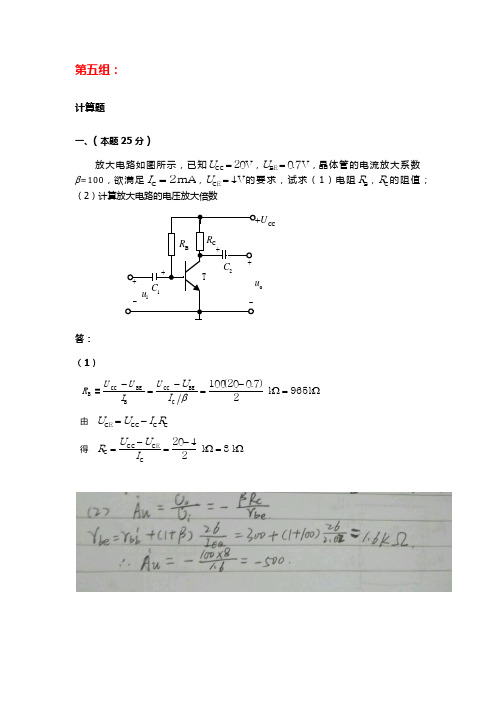 第五组：
计算题
一、(本题25分)
放大电路如图所示，已知U_CC=20V，U_BE=0.7V，晶体管的电流放大系数
β=100，欲满足I_C=2mA，U_CE=4V的要求，试求（1）电阻R_B，R_C的阻值；
（2）计算放大电路的电压放大倍数
+U_CC
R_B
R_C
+
C_2
+
T
+
C_1
+
u_i
u_o
−
−
答：
（1）
R_B = (U_CC−U_BE)/I_B = (U_CC−U_BE)/(I_C/β) = 100(20−0.7)/2 kΩ=965kΩ
由 U_CE=U_CC−I_C R_C
得 R_C = (U_CC−U_CE)/I_C = (20−4)/2 kΩ=8 kΩ
(2) Au = Uo/Ui = − βRc/rbe
rbe=rbb'+(1+β) 26/IEQ = 300+(1+100) 26/2.02 = 1.6KΩ.
∴ Au = − 100×8/1.6 = −500.